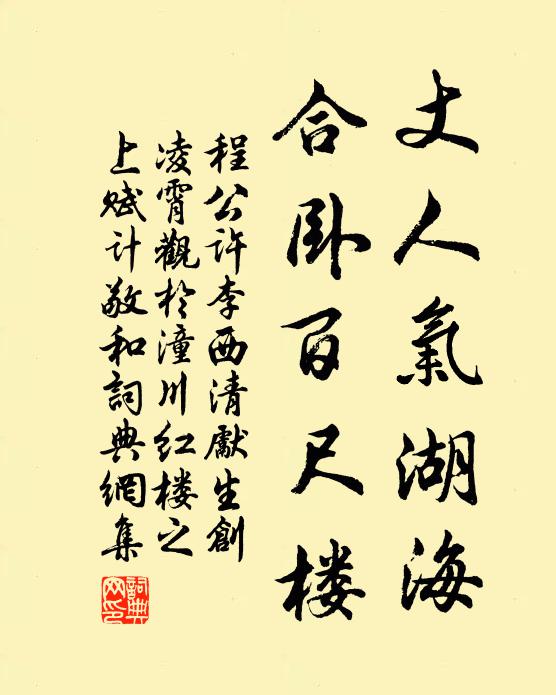 丈人氣湖海
合卧百尺楼
程公許李西清獻生創
凌霄觀於潼川红楼之
上赋计敬和詞典網集
詞典网印